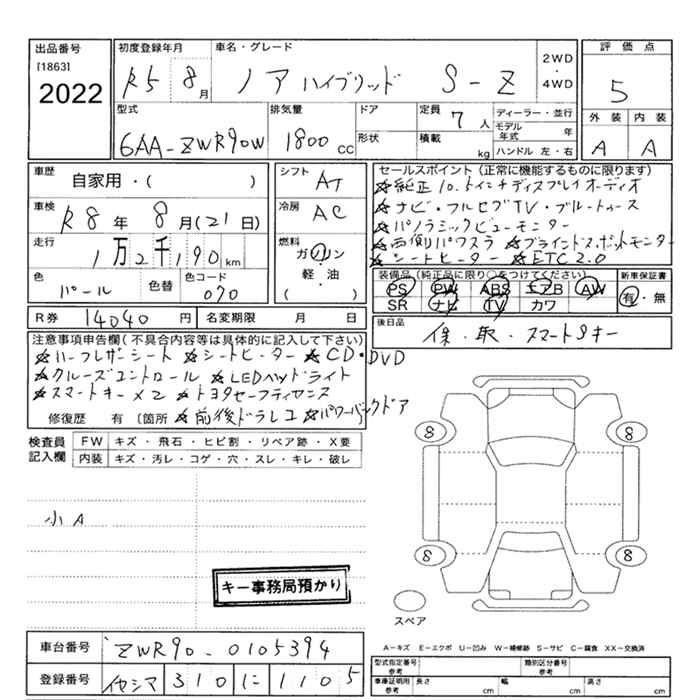 出品番号
[1863]
2022
初度登録年月
R5 8月
車名・グレード
ノア ハイブリッド S-Z
2WD
・
4WD
評価点
5
外装 内装
A A
型式
6AA-ZWR90W
排気量
1800cc
ドア
形状
定員 7人
積載 kg
ディーラー・並行
モデル年式 年
ハンドル 左・右
車歴
自家用・( )
車検
R8年8月(21日)
走行
1万2千190km
色
パール
色替
色コード
070
シフト
AT
冷房
AC
燃料
ガソリン
・
軽・油
( )
R券 14040円
名変期限 月 日
セールスポイント(正常に機能するものに限ります)
☆純正10.5インチディスプレイオーディオ
☆ナビ・フルセグTV・ブルートゥース
☆パノラミックビューモニター
☆両側パワスラ ☆ブラインドスポットモニター
☆シートヒーター ☆ETC2.0
装備品(純正品に限り○をつけてください)
PS PW ABS エアB AW
SR ナビ TV カワ
新車保証書
有・無
後日品
保・取・スマートSキー
注意事項申告欄(不具合内容等は具体的に記入して下さい)
☆ハーフレザーシート ☆シートヒーター ☆CD・DVD
☆クルーズコントロール ☆LEDヘッドライト
☆スマートキー×2 ☆トヨタセーフティセンス
修復歴 有 [箇所 ☆前後ドラレコ ☆パワーバックドア
検査員記入欄
FW キズ・飛石・ヒビ割・リペア跡・X要
内装 キズ・汚レ・コゲ・穴・スレ・キレ・破レ
小A
キー事務局預かり
8 8
8 8
スペア
A-キズ E-エクボ U-凹み W-補修跡 S-サビ C-腐食 XX-交換済
車台番号
ZWR90-0105394
登録番号
310 に 1105
型式指定番号
参考
類別区分番号
参考
車庫証明用
参考
長さ cm
幅 cm
高さ cm